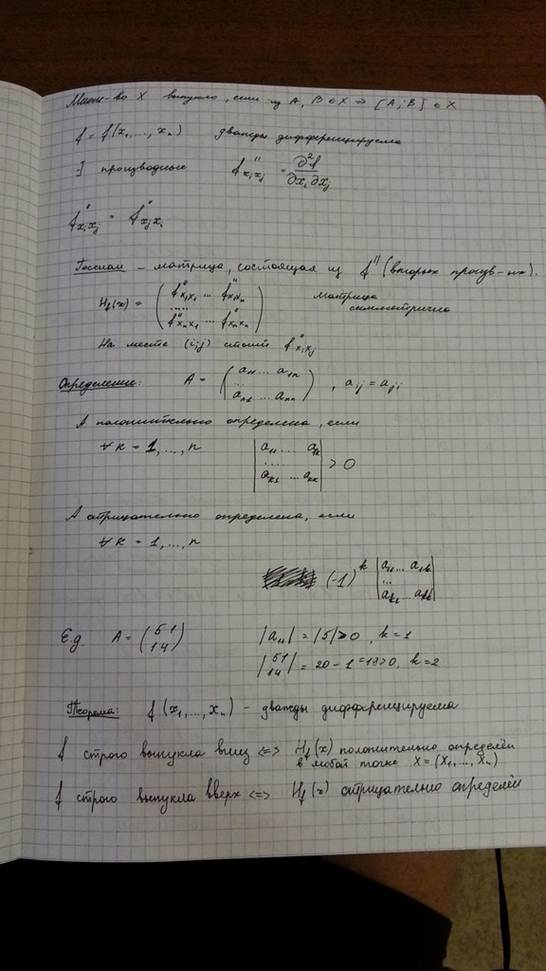 Множ-во X выпукло, если из A, B ∈ X ⇒ [A; B] ∈ X
f = f(x₁, ..., xₙ) дважды дифференцируема
∃ производные f''xᵢxⱼ = ∂²f / ∂xᵢ ∂xⱼ
f''xᵢxⱼ = f''xⱼxᵢ
Гессиан – матрица, состоящая из f'' (вторых произв-ых).
H_f(x) = ( f''x₁x₁ ... f''x₁xₙ
.....
f''xₙx₁ ... f''xₙxₙ ) матрица симметрична
На месте (i;j) стоит f''xᵢxⱼ
Определение: A = ( a₁₁ ... a₁ₙ
...
aₙ₁ ... aₙₙ ) , aᵢⱼ = aⱼᵢ
A положительно определена, если
∀ k = 1, ..., n | a₁₁ ... a₁ₖ
.....
aₖ₁ ... aₖₖ | > 0
A отрицательно определена, если
∀ k = 1, ..., n
(-1)ᵏ | a₁₁ ... a₁ₖ
...
aₖ₁ ... aₖₖ |
E.g. A = ( 5 1
1 4 ) |a₁₁| = |5| > 0, k = 1
| 5 1
1 4 | = 20 - 1 = 19 > 0, k = 2
Теорема: f(x₁, ..., xₙ) – дважды дифференцируема
f строго выпукла вниз <=> H_f(x) положительно определён
в любой точке X = (x₁, ..., xₙ)
f строго выпукла вверх <=> H_f(x) отрицательно определён